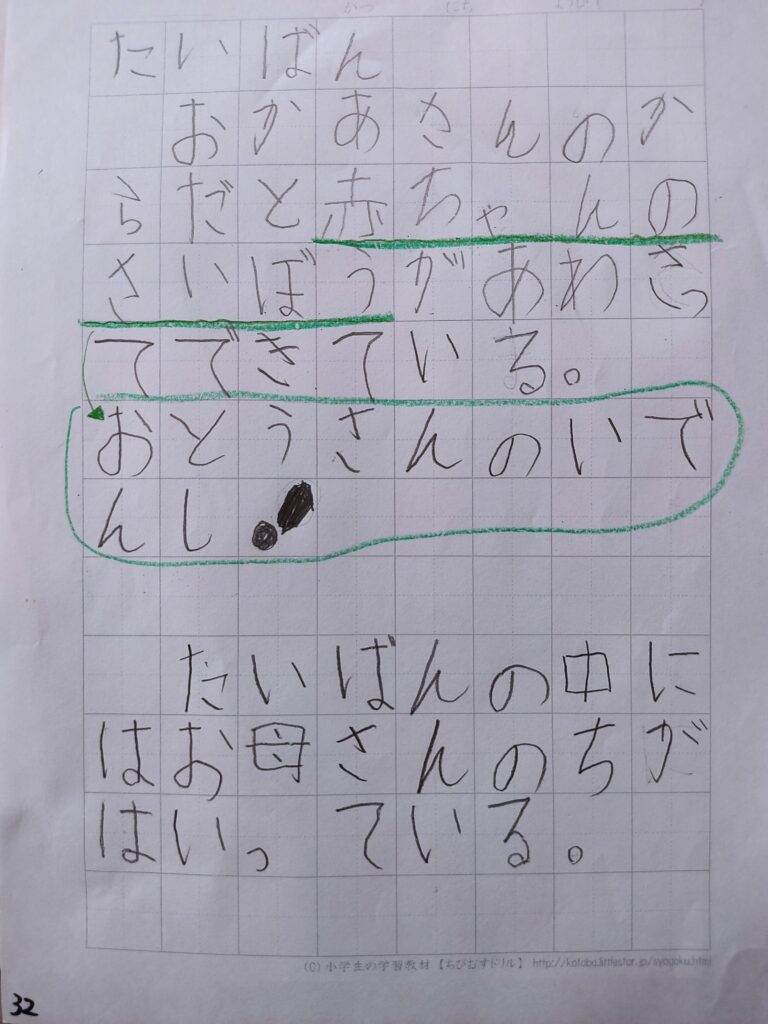 がつ にち ようび
たいばん
おかあさんのか
らだと赤ちゃんの
さいぼうがあわさっ
てできている。
おとうさんのいで
んし!
たいばんの中に
はお母さんのちが
はいっている。
(C) 小学生の学習教材【ちびむすドリル】 http://kotoba.littlestar.jp/syogaku.html
32